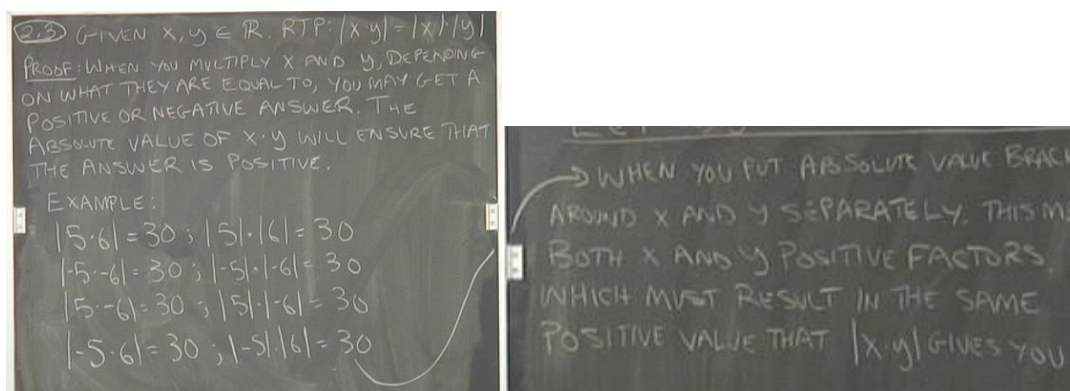 2.3 GIVEN X, Y ∈ ℝ. RTP: |X·Y| = |X|·|Y|
PROOF: WHEN YOU MULTIPLY X AND Y, DEPENDING
ON WHAT THEY ARE EQUAL TO, YOU MAY GET A
POSITIVE OR NEGATIVE ANSWER. THE
ABSOLUTE VALUE OF X·Y WILL ENSURE THAT
THE ANSWER IS POSITIVE.
EXAMPLE:
|5·6| = 30 ; |5|·|6| = 30
|-5·-6| = 30 ; |-5|·|-6| = 30
|5·-6| = 30 ; |5|·|-6| = 30
|-5·6| = 30 ; |-5|·|6| = 30
WHEN YOU PUT ABSOLUTE VALUE BRACK
AROUND X AND Y SEPARATELY. THIS
BOTH X AND Y POSITIVE FACTORS.
WHICH MUST RESULT IN THE SAME
POSITIVE VALUE THAT |X·Y| GIVES YOU